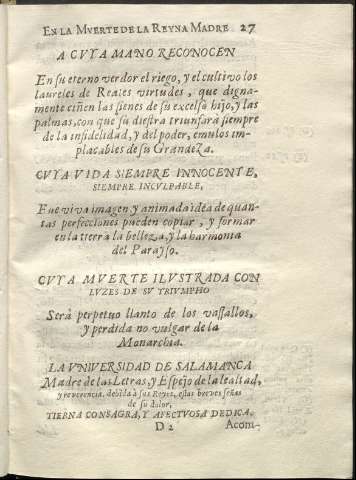 EN LA MVERTE DE LA REYNA MADRE 27
A CVYA MANO RECONOCEN
En su eterno verdor el riego, y el cultivo los
laureles de Reales virtudes, que digna-
mente ciñen las sienes de su excelso hijo, y las
palmas, con que su diestra triunfarà siempre
de la infidelidad, y del poder, emulos im-
placables de su Grandeza.
CVYA VIDA SIEMPRE INNOCENTE,
SIEMPRE INCVLPABLE,
Fue viva imagen, y animada idèa de quan-
tas perfecciones pueden copiar, y formar
en la tierra la belleza, y la harmonia
del Parayso.
CVYA MVERTE ILVSTRADA CON
LVZES DE SV TRIVMPHO
Serà perpetuo llanto de los vassallos,
y perdida no vulgar de la
Monarchia.
LA VNIVERSIDAD DE SALAMANCA
Madre de las Letras, y Espejo de la lealtad,
y reverencia, debida à sus Reyes, estas breves señas
de su dolor,
TIERNA CONSAGRA, Y AFECTVOSA DEDICA.
D 2 Acom-